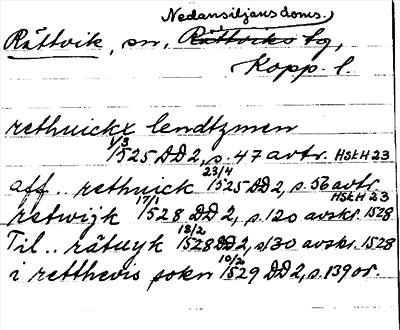 Nedansiljans doms.
Rättvik, sn, Rättviks tg,
Kopp. l.
rethuickx lendtzmen
1/3 1525 DD2, s. 47 avtr. HSkH 23
aff .. rethuick 23/4 1525 DD2, s. 56 avtr. HSkH 23
retwijk 17/1 1528 DD2, s. 120 avskr. 1528
Til .. rätuyk 18/2 1528 DD2, s. 130 avskr. 1528
i retthevis sokn 10/2 1529 DD2, s. 139 or.